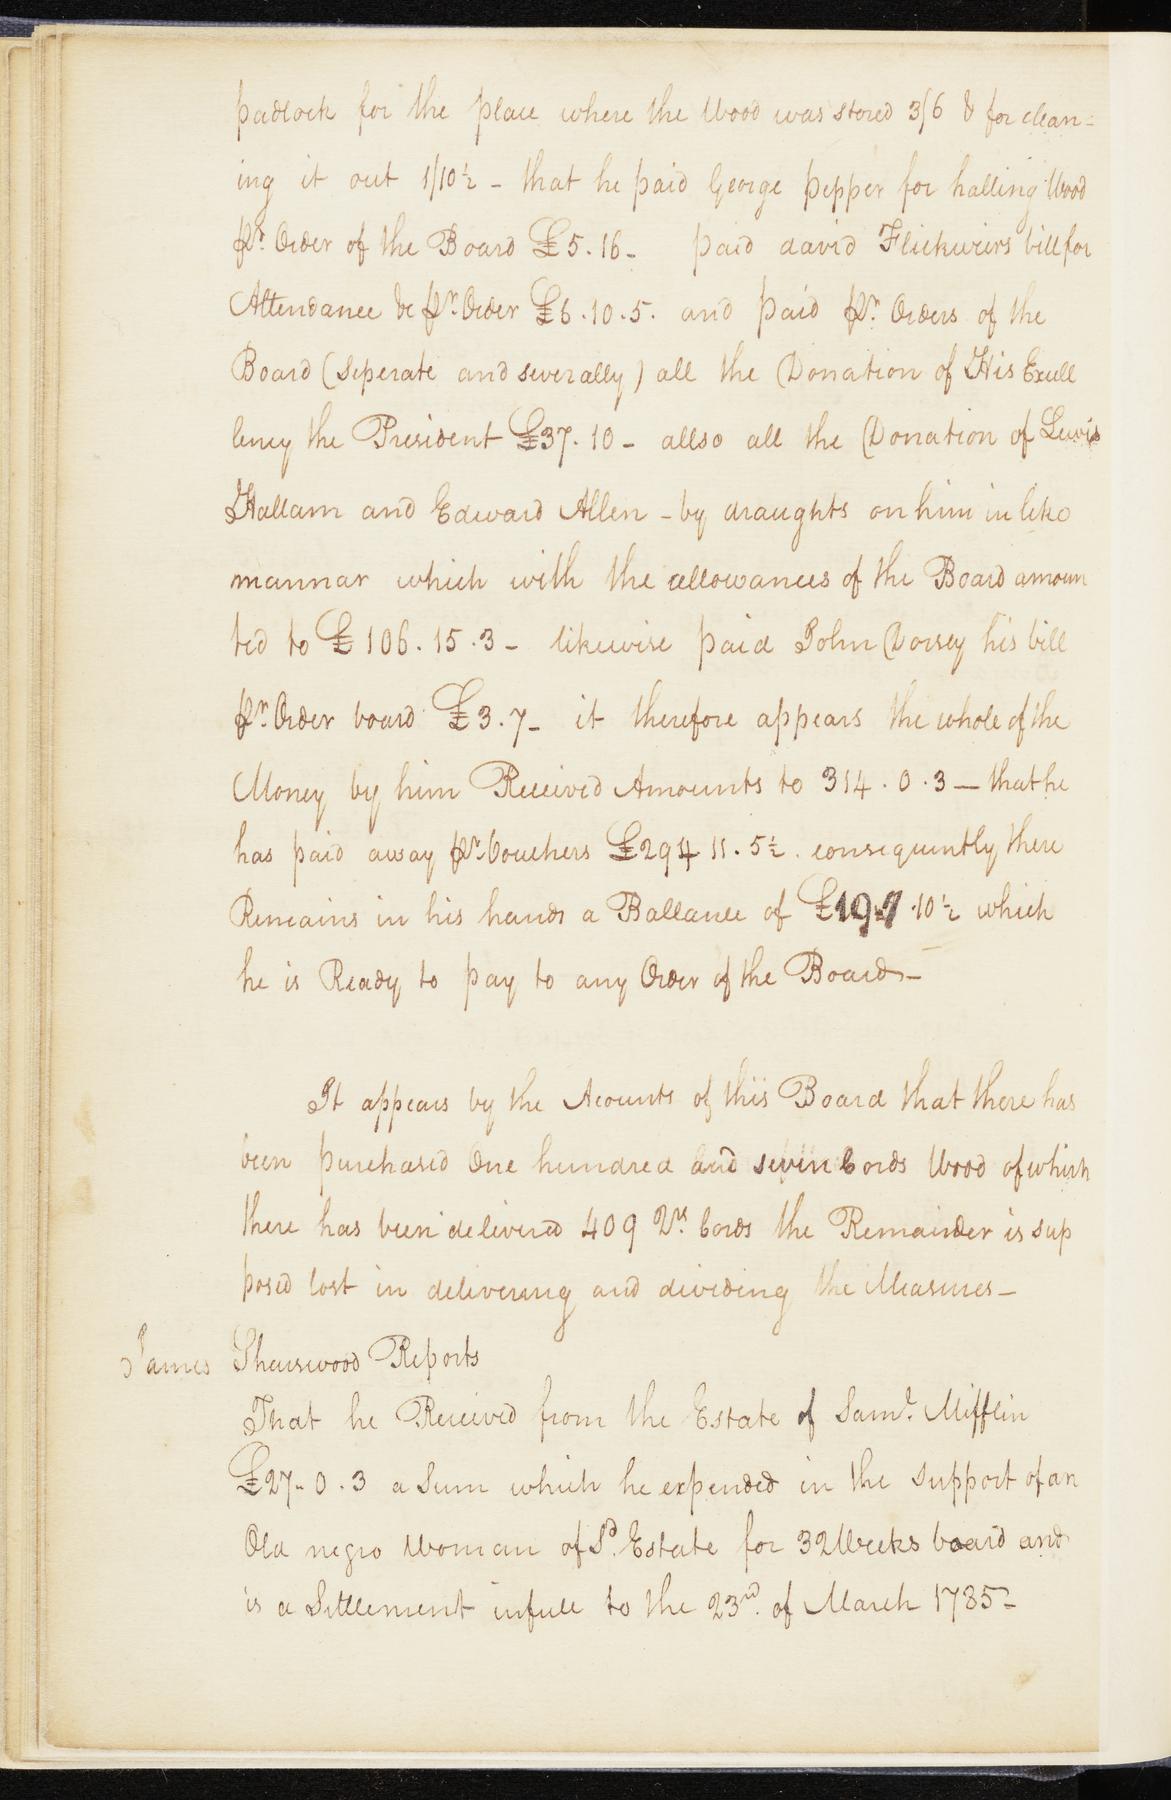 padlock for the place where the Wood was stored 3/6 & for clean=
ing it out 1/10½ - that he paid George Pepper for halling Wood
pr. Order of the Board £5.16- paid david Flickwirs bill for
Attendance &c pr. Order £6.10.5. and paid pr. Orders of the
Board (seperate and severally) all the Donation of His Excell
lency the President £37.10- allso all the Donation of Lewis
Hallam and Edward Allen - by draughts on him in like
mannar which with the allowances of the Board amoun
ted to £106.15.3- likewise paid John Dorsey his bill
pr. Order board £3.7- it therefore appears the whole of the
Money by him Received Amounts to 314.0.3 — that he
has paid away pr. Vouchers £294 11.5½. consequently there
Remains in his hands a Ballance of £19 10½ which
he is Ready to pay to any Order of the Board-
It appears by the Acounts of this Board that there has
been purchased One hundred and seven Cords Wood of which
there has been delivered 409 Qrs. Cords the Remainder is sup
posed lost in delivering and dividing the Measures-
James Sharswood Reports
That he Received from the Estate of Saml. Mifflin
£27-0.3 a Sum which he expended in the support of an
Old negro Woman of Sd. Estate for 32 Weeks board and
is a Settlement infull to the 23rd. of March 1785=